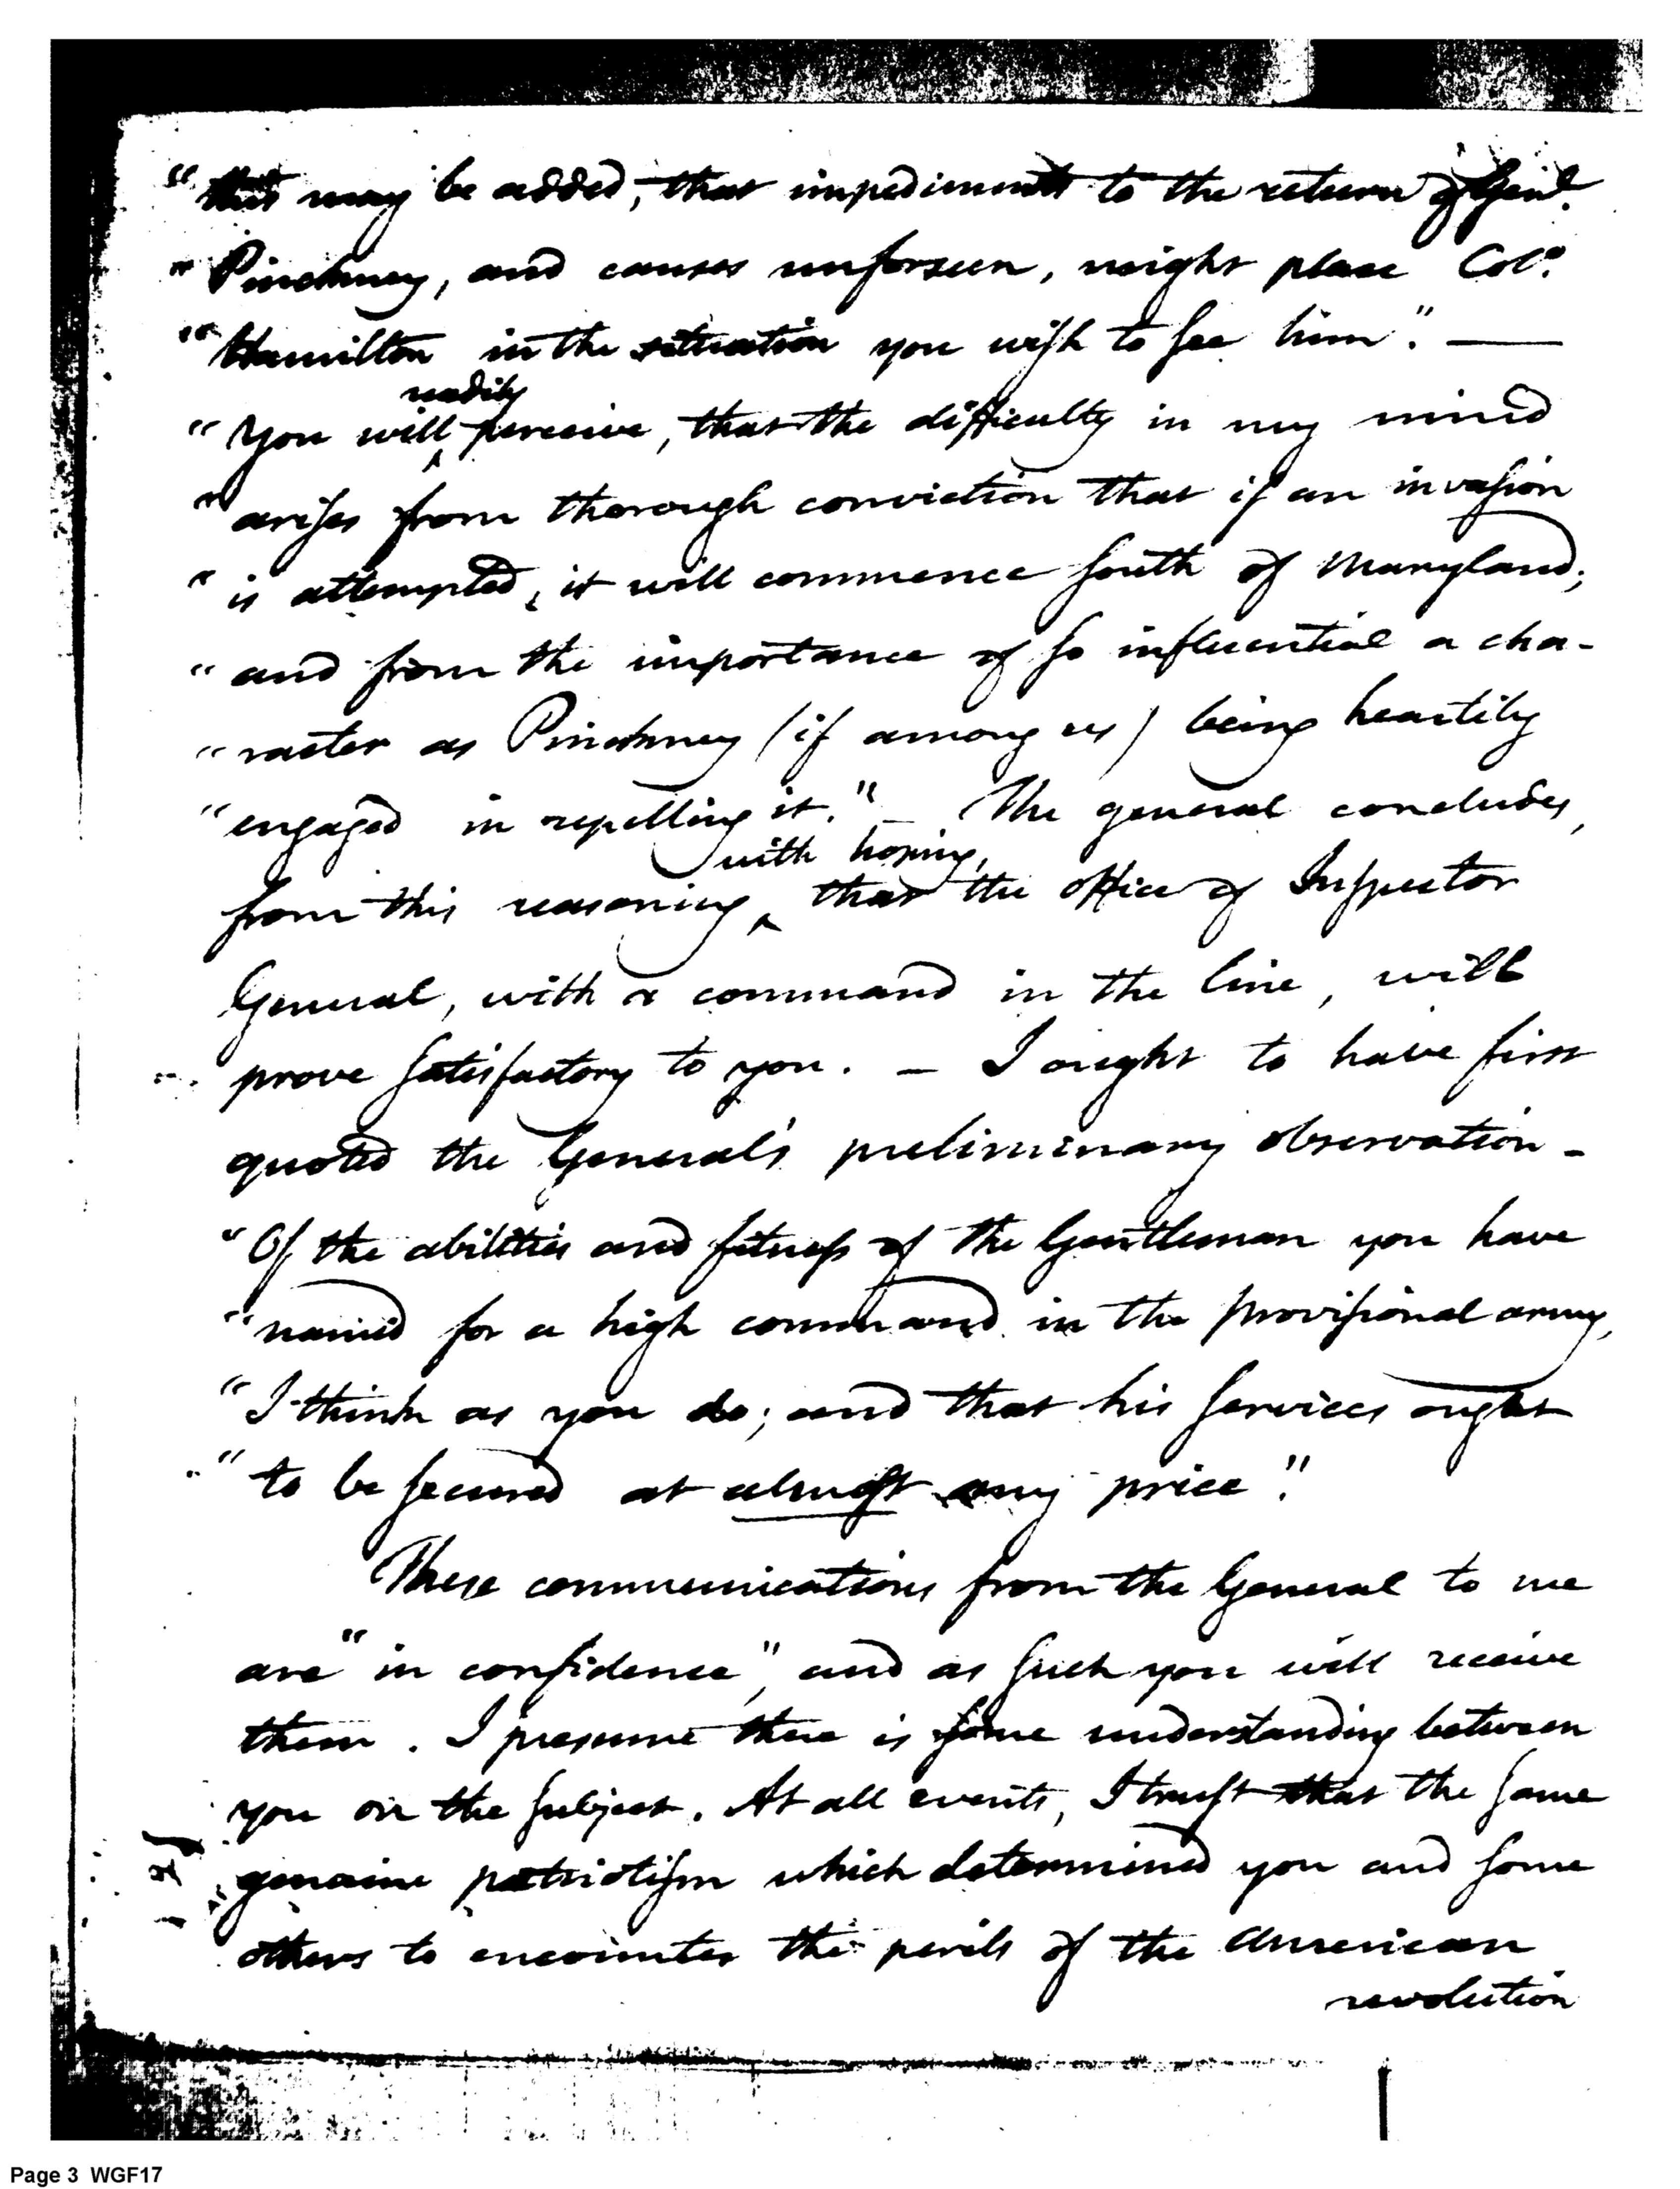 " this may be added, that impediments to the return of Genl.
" Pinckney, and causes unforseen, might place Colo.
" Hamilton in the situation you wish to see him". —
readily
" You will perceive, that the difficulty in my mind
" arises from thorough conviction that if an invasion
" is attempted, it will commence south of Maryland;
" and from the importance of so influential a cha-
" racter as Pinckney (if among us) being heartily
" engaged in repelling it." — The general concludes,
with hoping,
from this reasoning ‸ that the office of Inspector
General, with a command in the line, will
prove satisfactory to you. — I ought to have first
quoted the General's preliminary observation —
" Of the abilities and fitness of the Gentleman you have
" named for a high command in the provisional army,
" I think as you do; and that his services ought
" to be secured at almost any price".
These communications from the General to me
are "in confidence", and as such you will receive
them. I presume there is some understanding between
you on the subject. At all events, I trust that the same
genuine patriotism which determined you and some
others to encounter the perils of the American
revolution
Page 3 WGF17